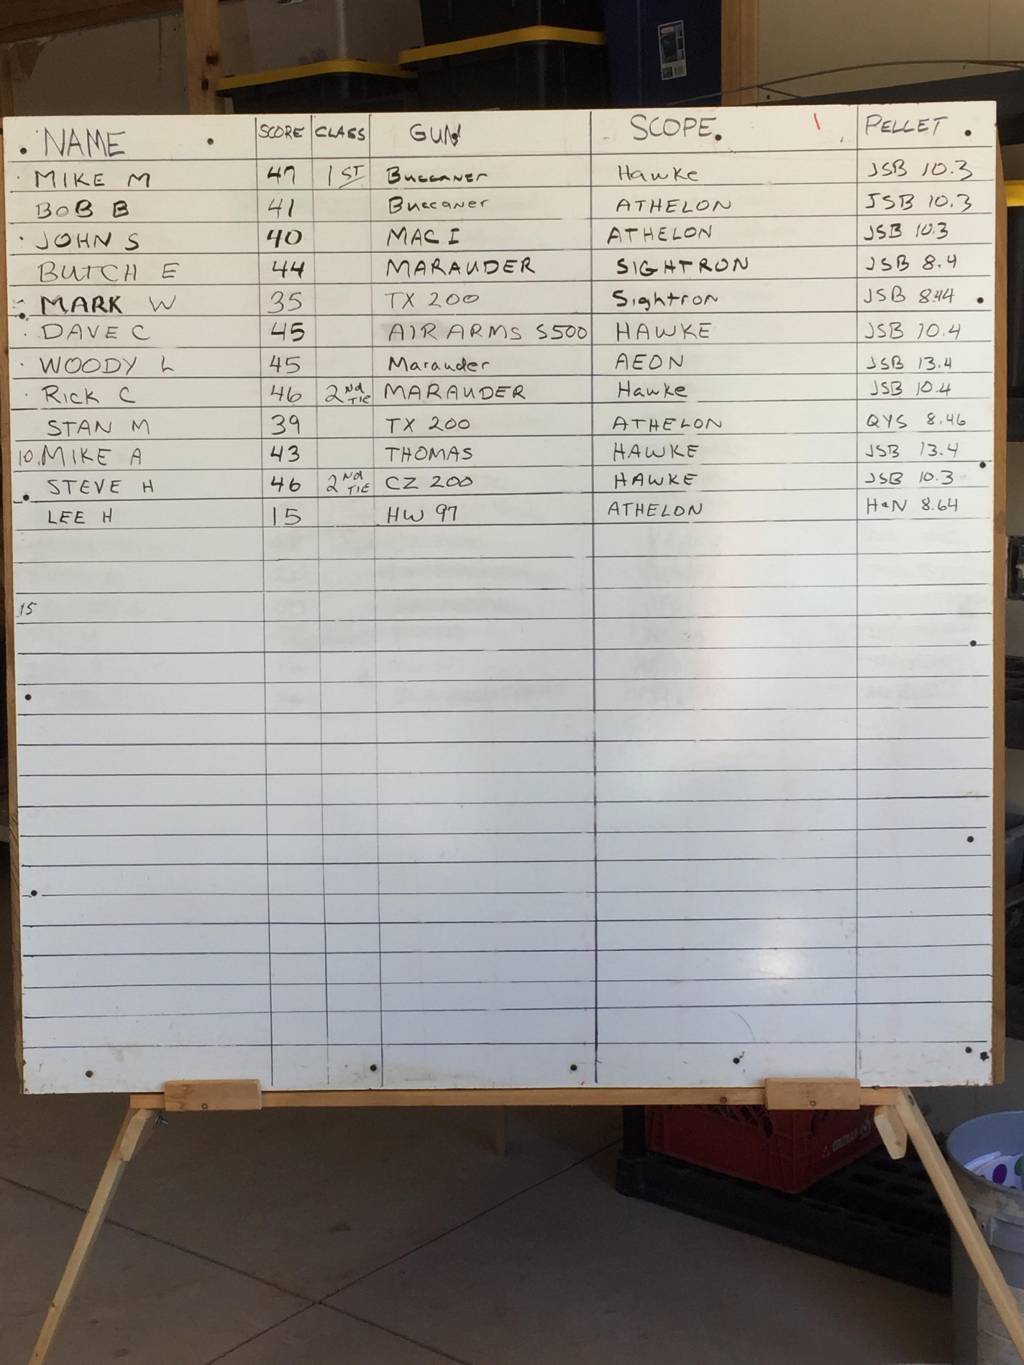 NAME SCORE CLASS GUN SCOPE PELLET
MIKE M 47 1ST Buccaner Hawke JSB 10.3
BOB B 41 Buccaner ATHELON JSB 10.3
JOHN S 40 MAC I ATHELON JSB 10.3
BUTCH E 44 MARAUDER SIGHTRON JSB 8.4
MARK W 35 TX 200 Sightron JSB 844
DAVE C 45 AIR ARMS S500 HAWKE JSB 10.4
WOODY L 45 Marauder AEON JSB 13.4
Rick C 46 2nd TIE MARAUDER Hawke JSB 10.4
STAN M 39 TX 200 ATHELON QYS 8.46
10. MIKE A 43 THOMAS HAWKE JSB 13.4
STEVE H 46 2nd TIE CZ 200 HAWKE JSB 10.3
LEE H 15 HW 97 ATHELON H&N 8.64
15